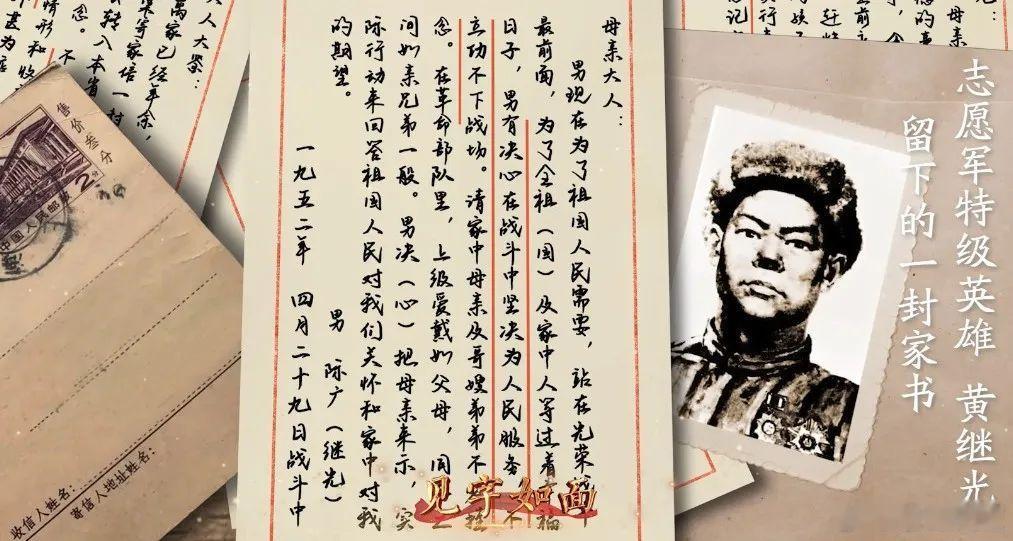 志愿军特级英雄 黄继光
留下的一封家书
母亲大人：
男现在为了祖国人民需要，站在光荣
最前面，为了全祖（国）及家中人等过着 福
日子，男有决心在战斗中坚决为人民服务 不
立功不下战场。请家中母亲及哥嫂弟弟不 挂
念。在革命部队里，上级爱戴如父母，同
间如亲兄弟一般。男决（心）把母亲来示，实
际行动来回答祖国人民对我们关怀和家中对我
的期望。
男 际广（继光）
一九五二年 四月二十九日战斗中
见字如面
大人大鉴：
离家已经年余，
寄家信一封
转入本省
情形和收
售价叁分
2分
中国人民邮政
收信人姓名：
寄信人地址姓名：